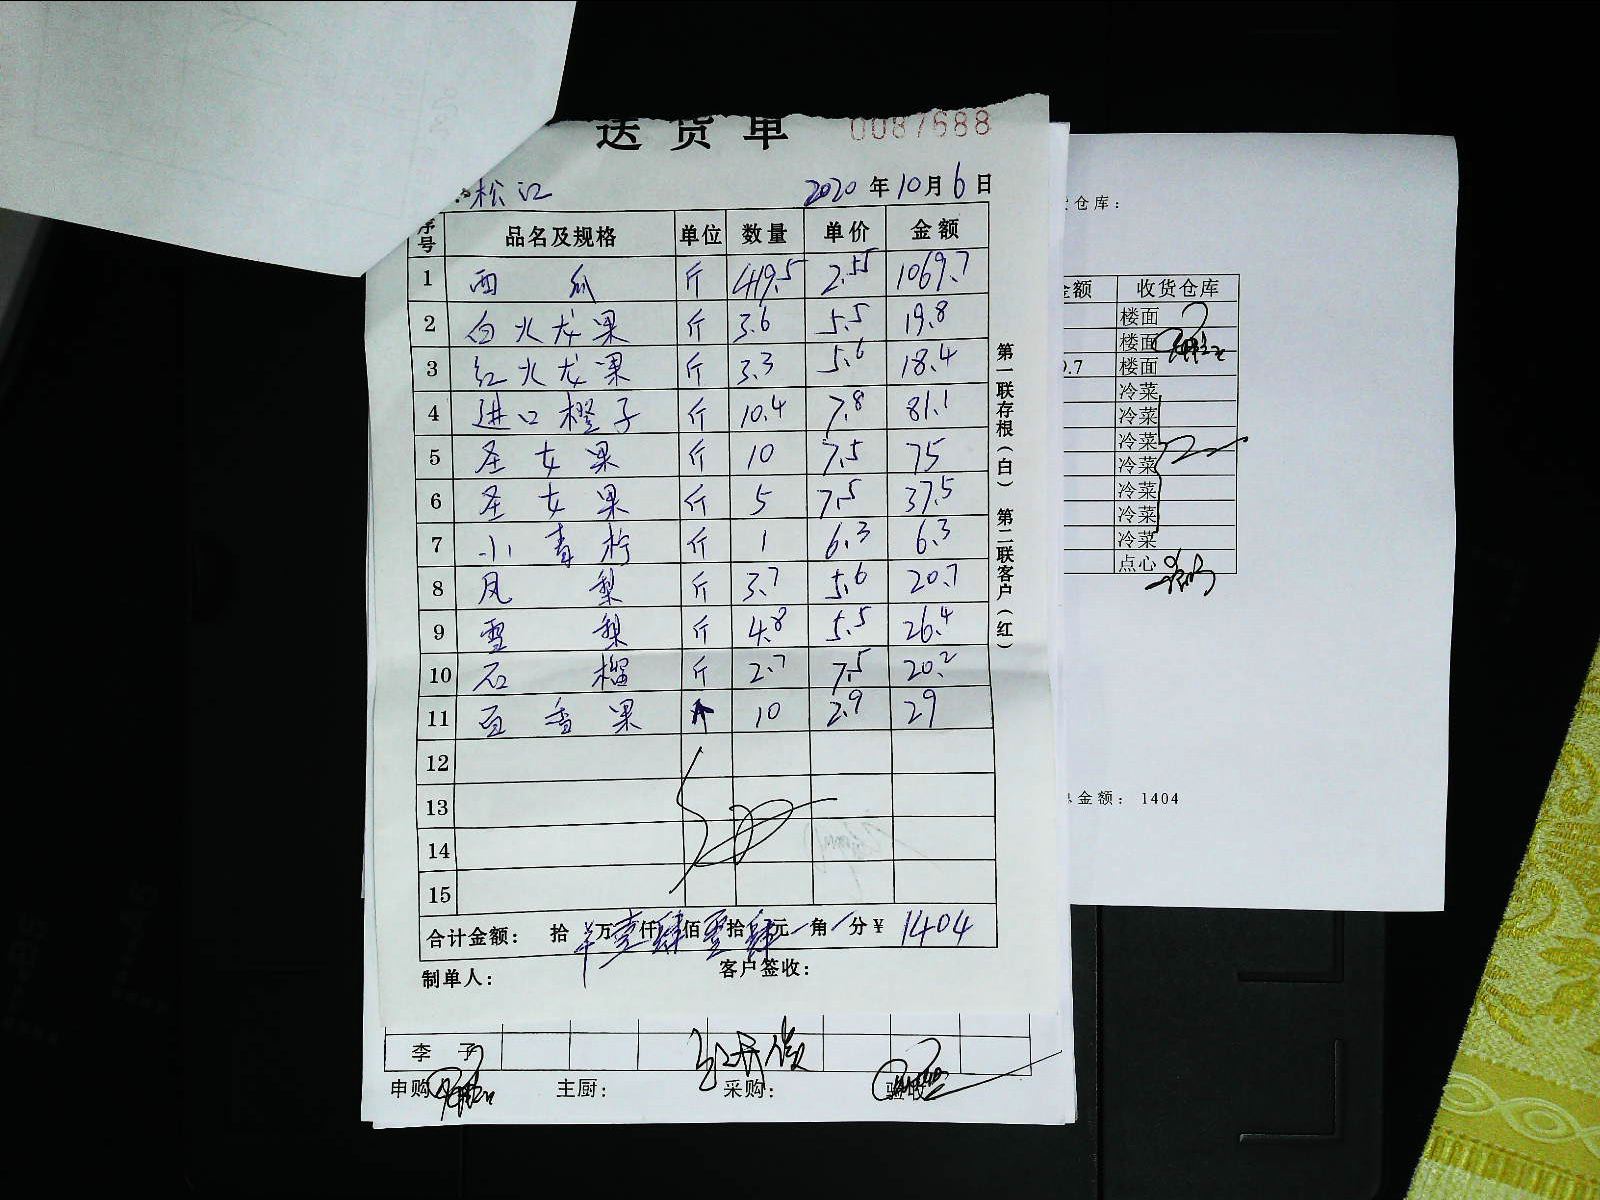 送货单 0087688
松江 2020年10月6日
序号 品名及规格 单位 数量 单价 金额
1 西瓜 斤 419.5 2.55 1069.7
2 白火龙果 斤 3.6 5.5 19.8
3 红火龙果 斤 3.3 5.6 18.4
4 进口橙子 斤 10.4 7.8 81.1
5 圣女果 斤 10 7.5 75
6 圣女果 斤 5 7.5 37.5
7 小青柠 斤 1 6.3 6.3
8 凤梨 斤 3.7 5.6 20.7
9 雪梨 斤 4.8 5.5 26.4
10 石榴 斤 2.7 7.5 20.2
11 百香果 10 2.9 29
12
13
14
15
合计金额: 拾 万壹仟肆佰零拾肆元 角 分¥ 1404
制单人: 客户签收:
第一联存根(白) 第二联客户(红)
李子
申购 主厨: 采购: 验收
仓库:
金额 收货仓库
楼面
楼面
.7 楼面
冷菜
冷菜
冷菜
冷菜
冷菜
冷菜
冷菜
点心
金额: 1404